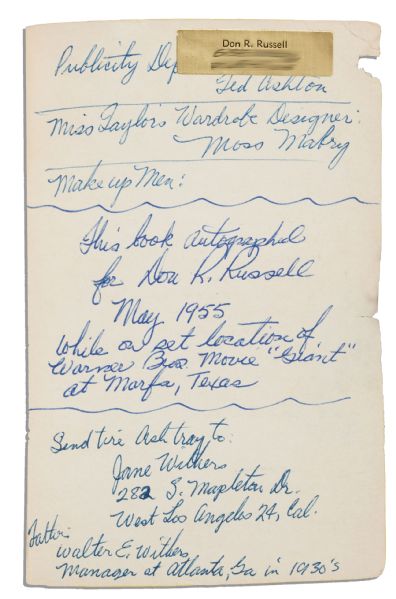 Don R. Russell
Publicity Dep
Ted Ashton
Miss Taylor's Wardrobe Designer:
Moss Mabry
Make up Men:
This book autographed
for Don R. Russell
May 1955
while on set location of
Warner Bros. Movie "Giant"
at Marfa, Texas
Send tire Ash tray to:
Jane Withers
282 S. Mapleton Dr.
West Los Angeles 24, Cal.
Father:
Walter E. Withers
Manager at Atlanta, Ga in 1930's